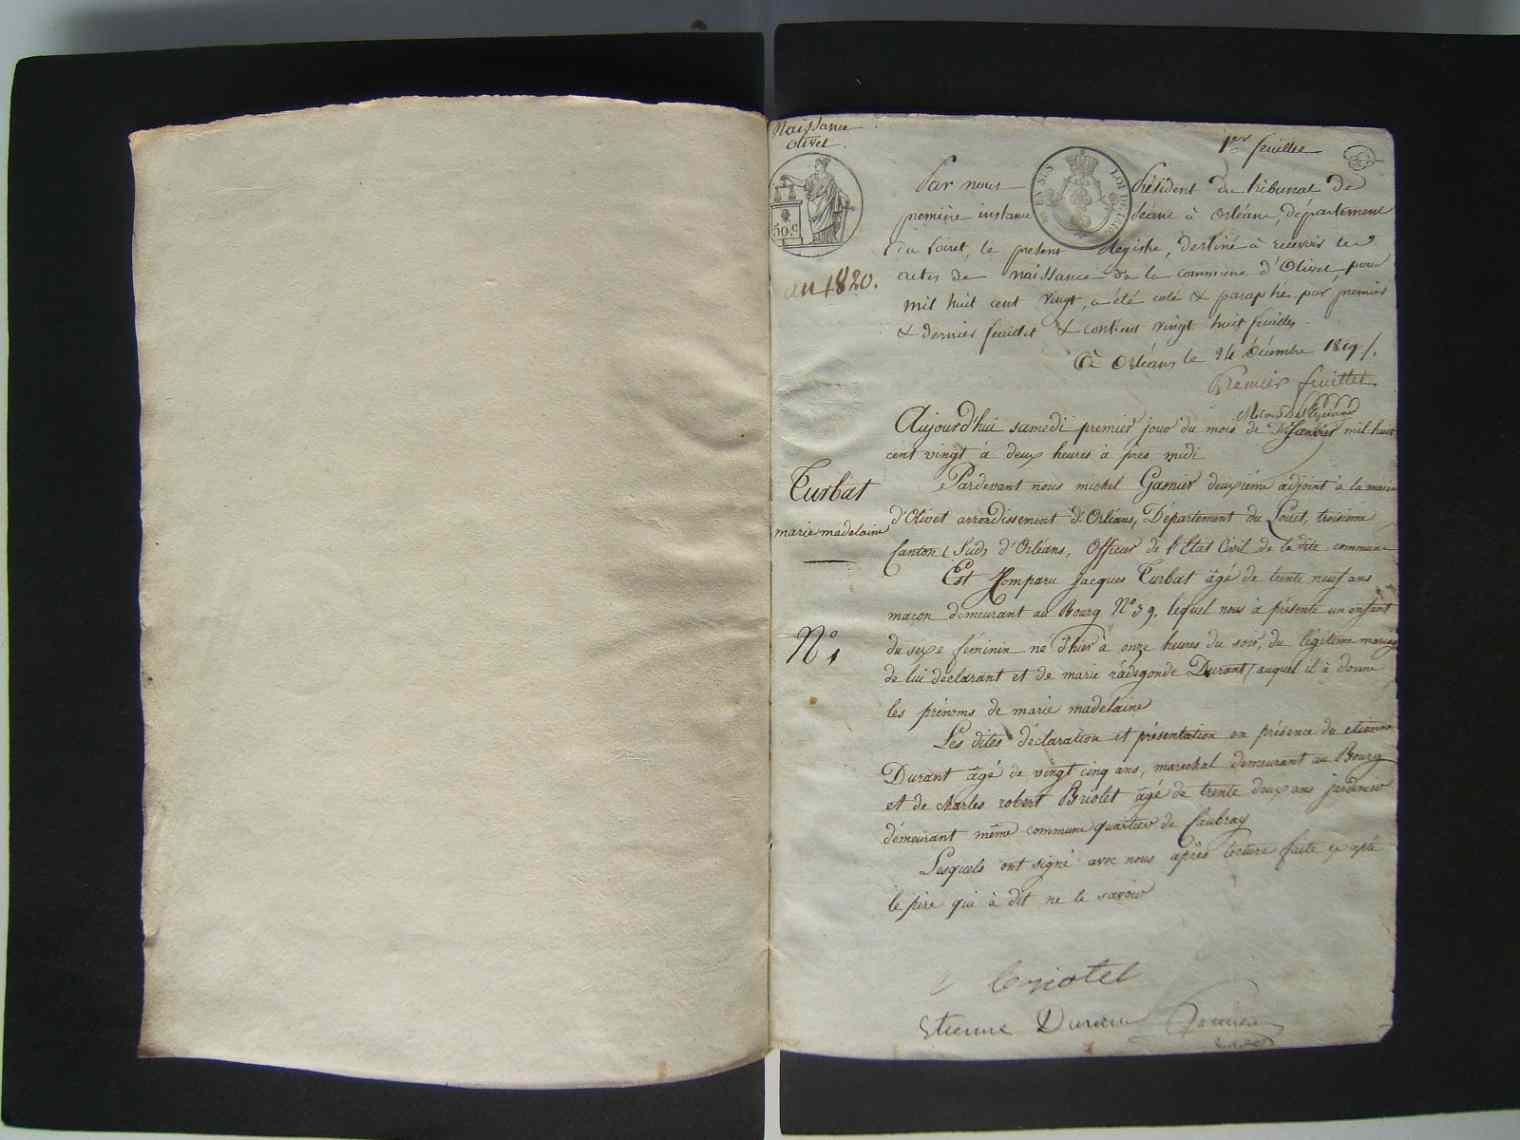 Naissance
Olivet.
1er feuillet
50 c
EN SUS
Par nous Président du tribunal de
première instance séant à Orléans, département
du Loiret, le présent Registre, destiné à recevoir les
actes de naissance de la commune d'Olivet pour
mil huit cent vingt, a été coté & paraphé par premier
& dernier feuillet & contient vingt huit feuillets
à Orléans le 24 Décembre 1819.
an 1820.
Premier feuillet
Aujourd'hui samedi premier jour du mois de Janvier mil huit
cent vingt à deux heures à pres midi
Turbat
marie madelaine
N° 1
Pardevant nous michel Gasnier deuxième adjoint à la mairie
d'Olivet arrondissement d'Orléans, Département du Loiret, troisieme
Canton (Sud) d'Orléans, Officier de l'Etat Civil de la dite commune
Est Comparu Jacques Turbat âgé de trente neuf ans
maçon demeurant au Bourg N° 59. lequel nous à présenté un enfant
du sexe féminin né d'hier à onze heures du soir, du légitime mariage
de lui déclarant et de marie radegonde Durant, auquel il à donné
les prénoms de marie madelaine
Les dites déclaration et présentation en présence de etienne
Durant âgé de vingt cinq ans, marechal demeurant au Bourg
et de charles robert Briolet âgé de trente deux ans jardinier
demeurant même commune quartier de Caubray
Lesquels ont signé avec nous après lecture faite
le père qui à dit ne le savoir
Etienne Durant